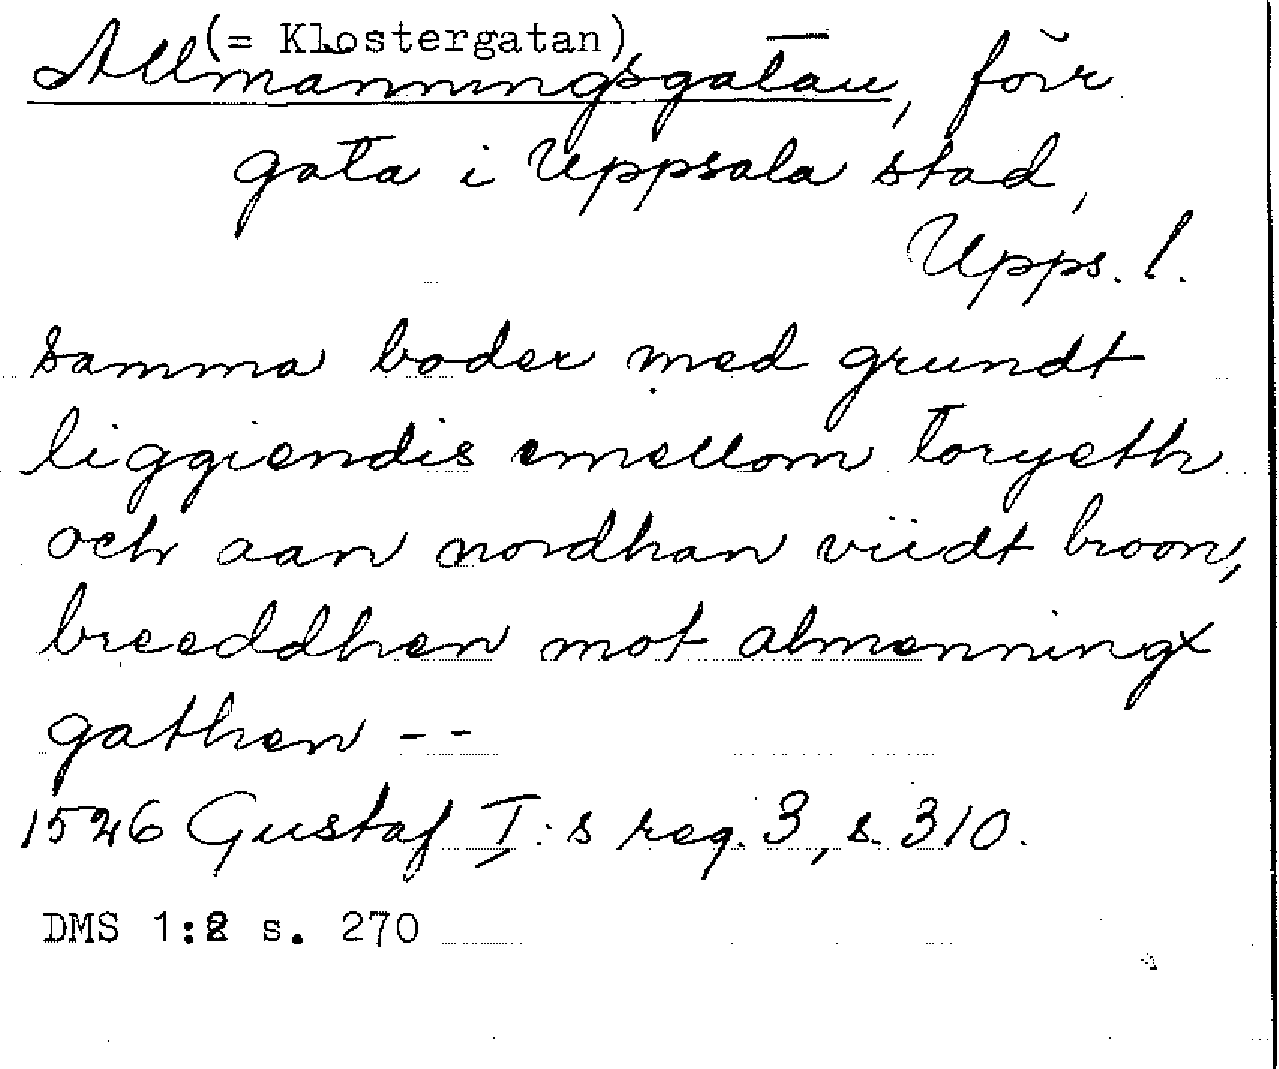 (= Klostergatan)
Allmänningsgatan, förr
gata i Uppsala stad,
Upps. l.
samma boder med grundt
liggiendis emellom toryeth
och aan nordhan viidt broon,
breeddhen mot almenningx
gathen --
1526 Gustaf I:s reg. 3, s. 310.
DMS 1:2 s. 270